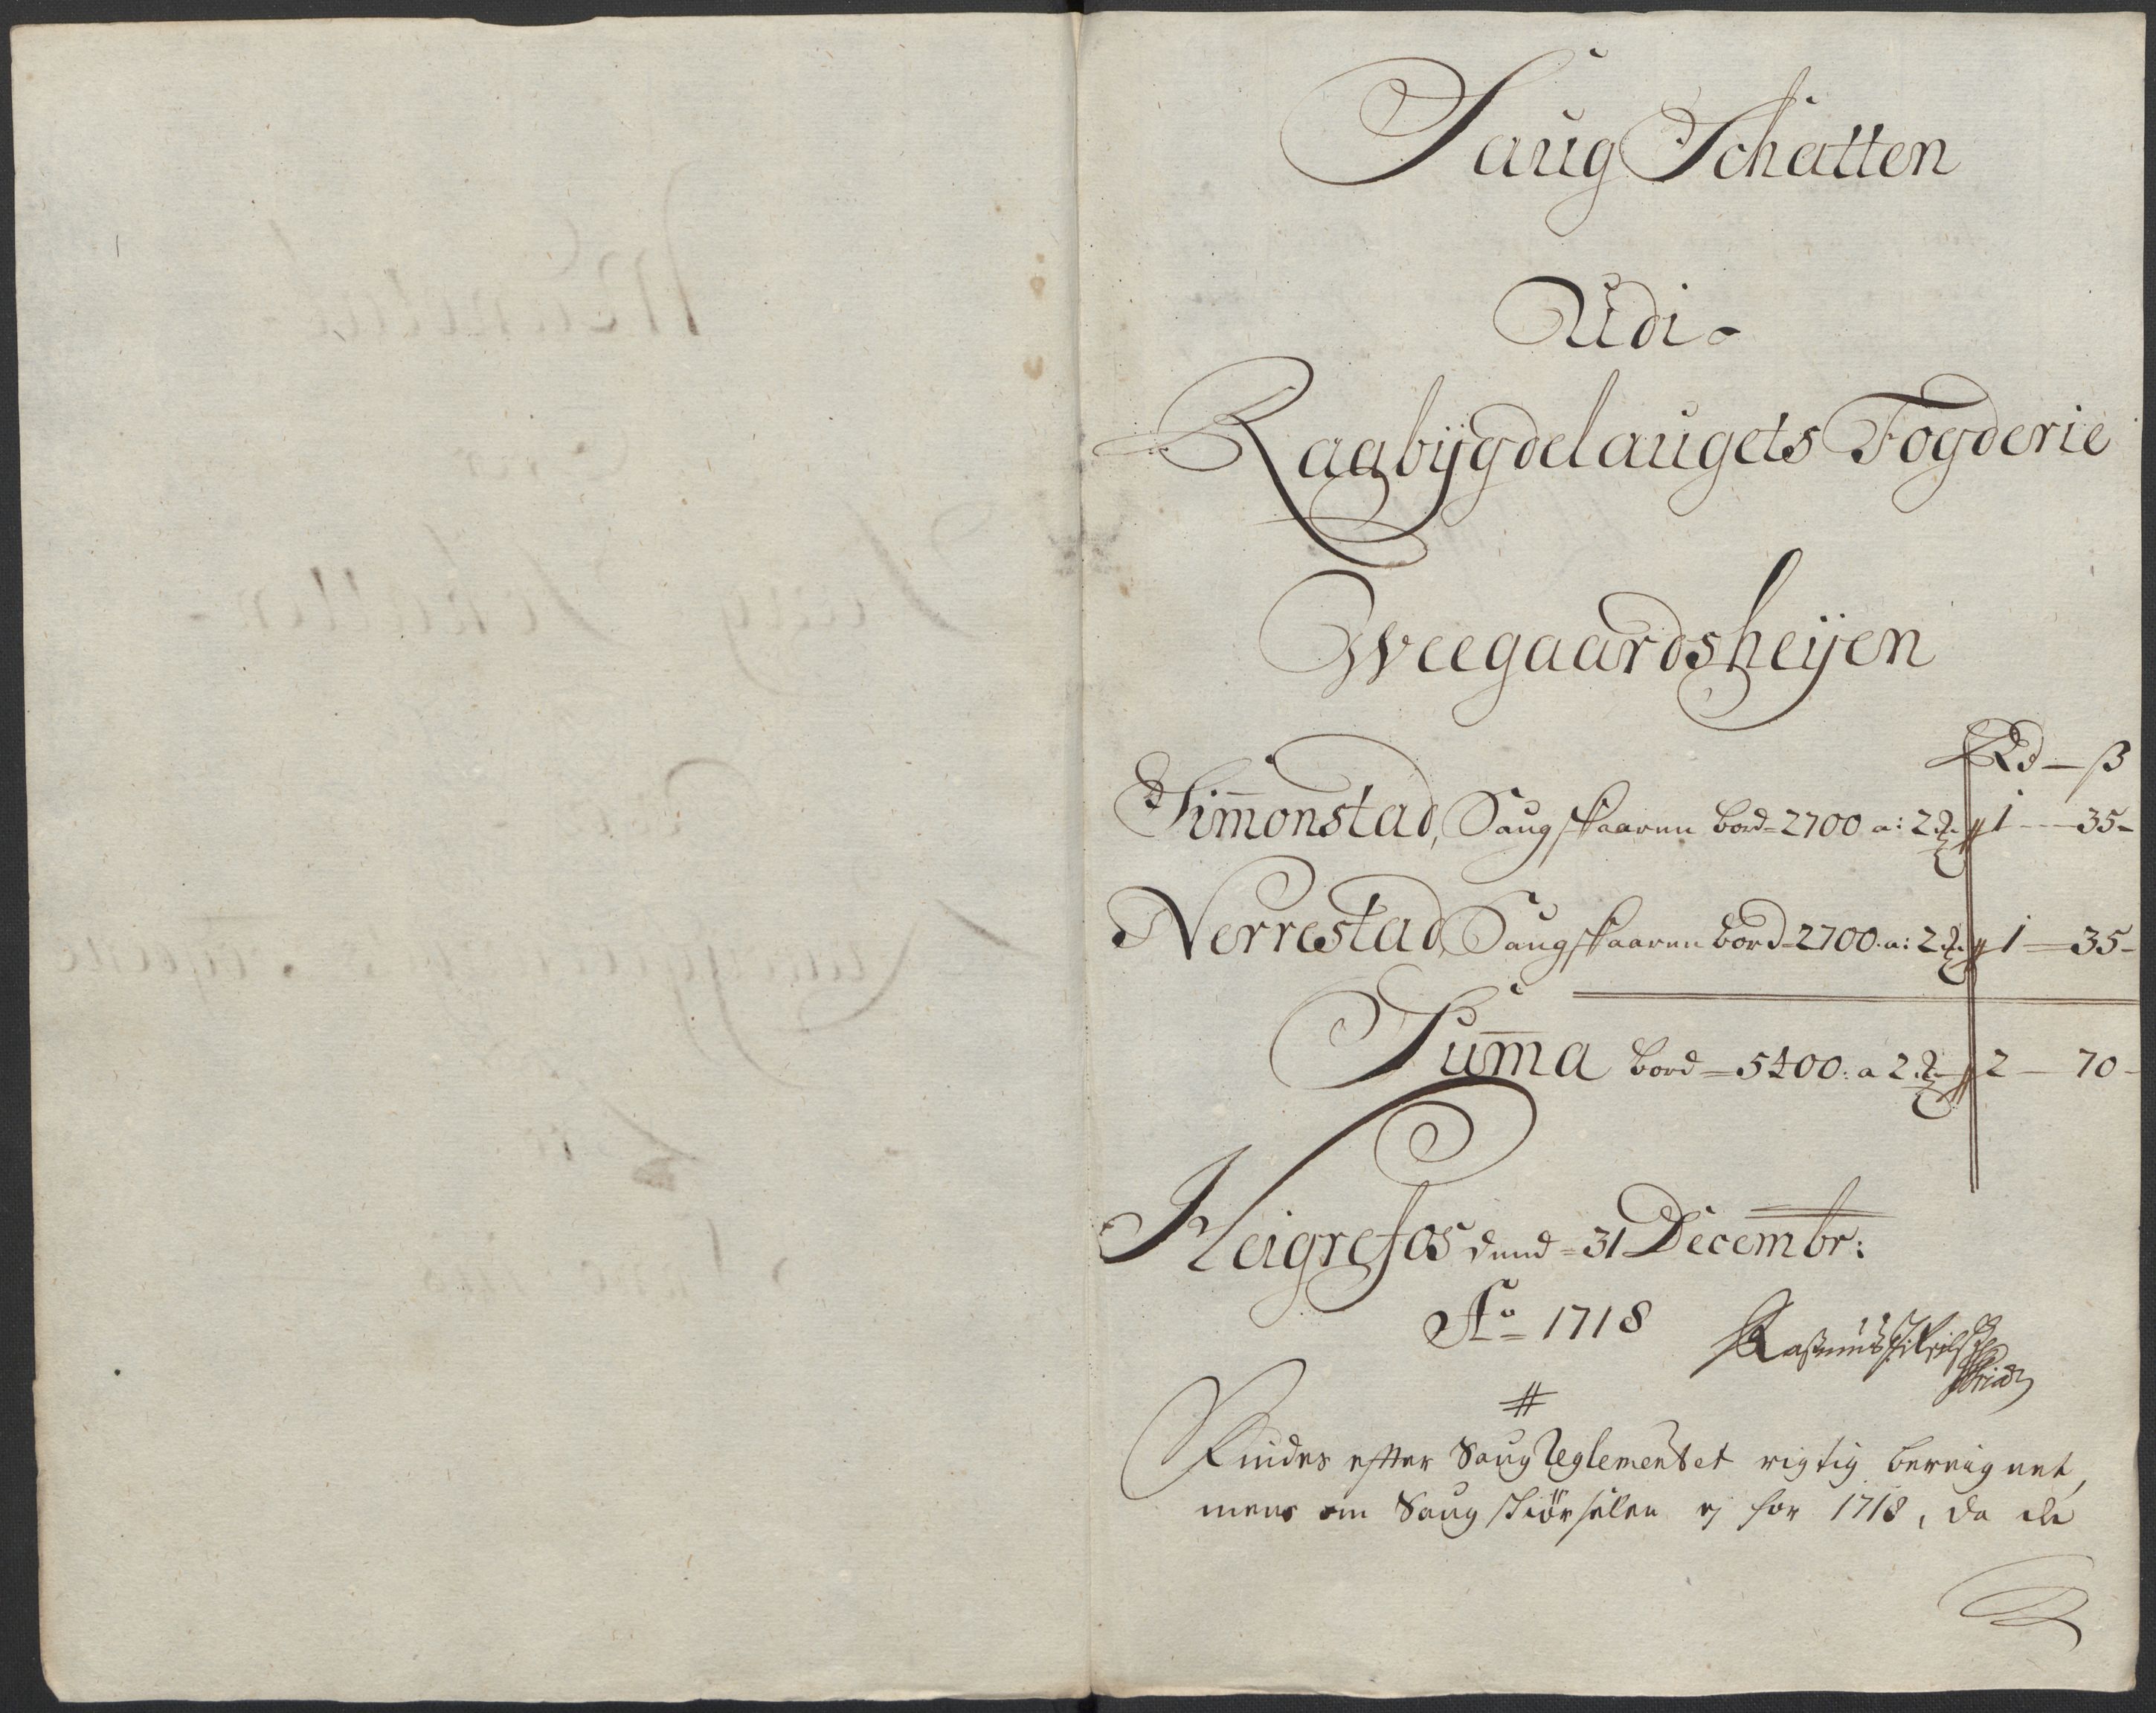 Saug Schatten
Udi
Raabÿgdelaugets Fogderie
Weegaardsheÿen
Rd — ß
Sim̄onstad, Saug skaaren bord = 2700 a: 2 ₰ 1 — 35 -
Nerrestad, Saug skaaren bord = 2700 a: 2 ₰ 1 — 35 -
Sum̄a bord = 5400: a 2 ₰ 2 — 70 -
Heigrefos dend = 31 Decembr:
Ao 1718
Rasmus
#
Findes efter Saug Reglementet rigtig bereignet,
mens om Saug skiörselen ej for 1718, da de